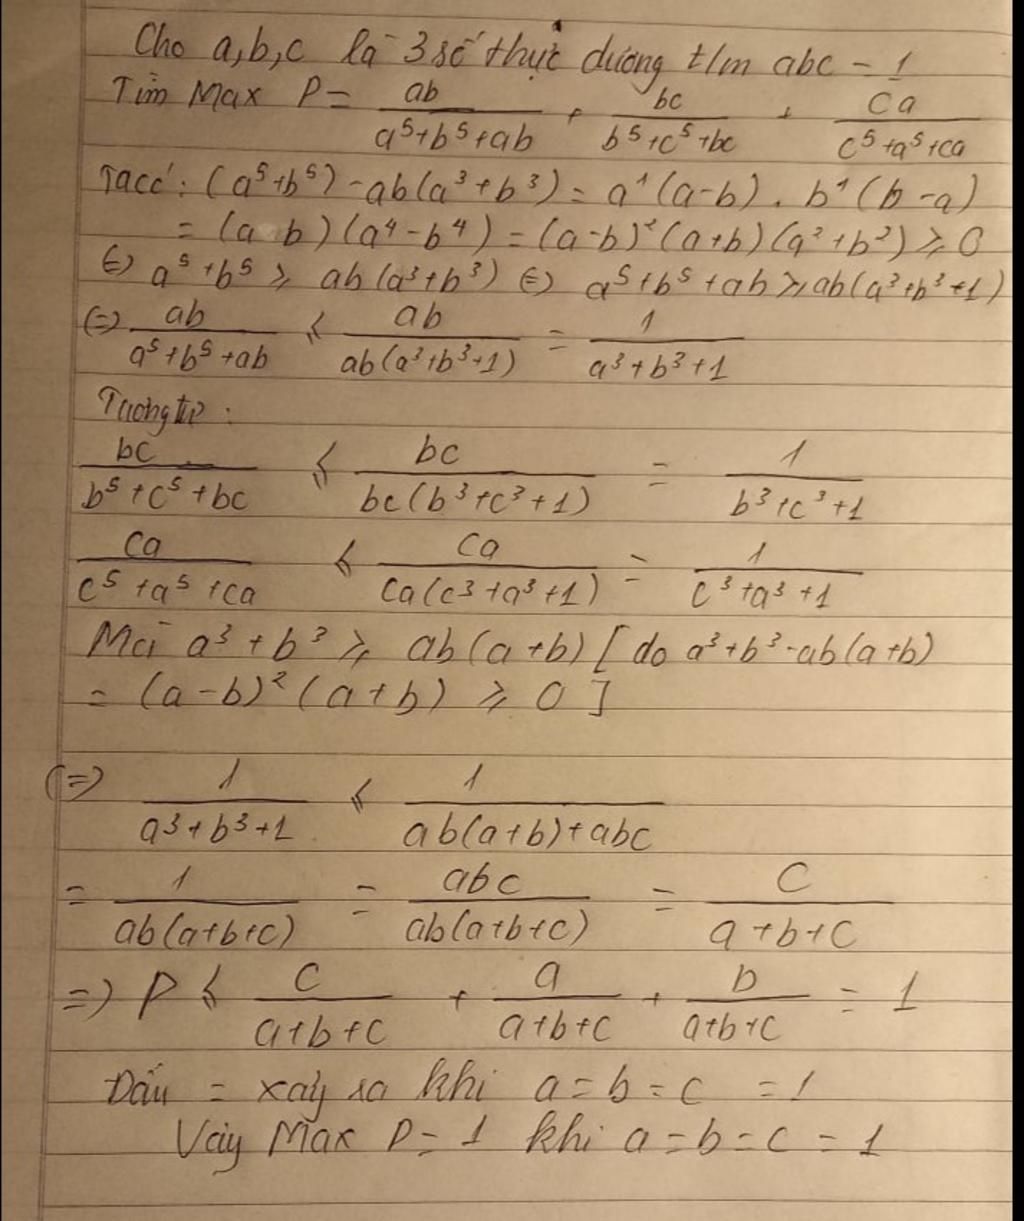 Cho a,b,c là 3 số thực dương t/m abc = 1
Tìm Max P = ab/(a⁵+b⁵+ab) + bc/(b⁵+c⁵+bc) + ca/(c⁵+a⁵+ca)
Ta có: (a⁵+b⁵)-ab(a³+b³) = a⁴(a-b). b⁴(b-a)
= (a b)(a⁴-b⁴) = (a-b)²(a+b)(a²+b²) ⩾ 0
(=) a⁵+b⁵ ⩾ ab(a³+b³) (=) a⁵+b⁵+ab ⩾ ab(a³+b³+1)
(=) ab/(a⁵+b⁵+ab) ⩽ ab/(ab(a³+b³+1)) = 1/(a³+b³+1)
Tương tự:
bc/(b⁵+c⁵+bc) ⩽ bc/(bc(b³+c³+1)) = 1/(b³+c³+1)
ca/(c⁵+a⁵+ca) ⩽ ca/(ca(c³+a³+1)) = 1/(c³+a³+1)
Mà a³+b³ ⩾ ab(a+b) [do a³+b³-ab(a+b)
= (a-b)²(a+b) ⩾ 0]
(=) 1/(a³+b³+1) ⩽ 1/(ab(a+b)+abc)
= 1/(ab(a+b+c)) = abc/(ab(a+b+c)) = c/(a+b+c)
=) P ⩽ c/(a+b+c) + a/(a+b+c) + b/(a+b+c) = 1
Dấu = xảy ra khi a = b = c = 1
Vậy Max P = 1 khi a = b = c = 1